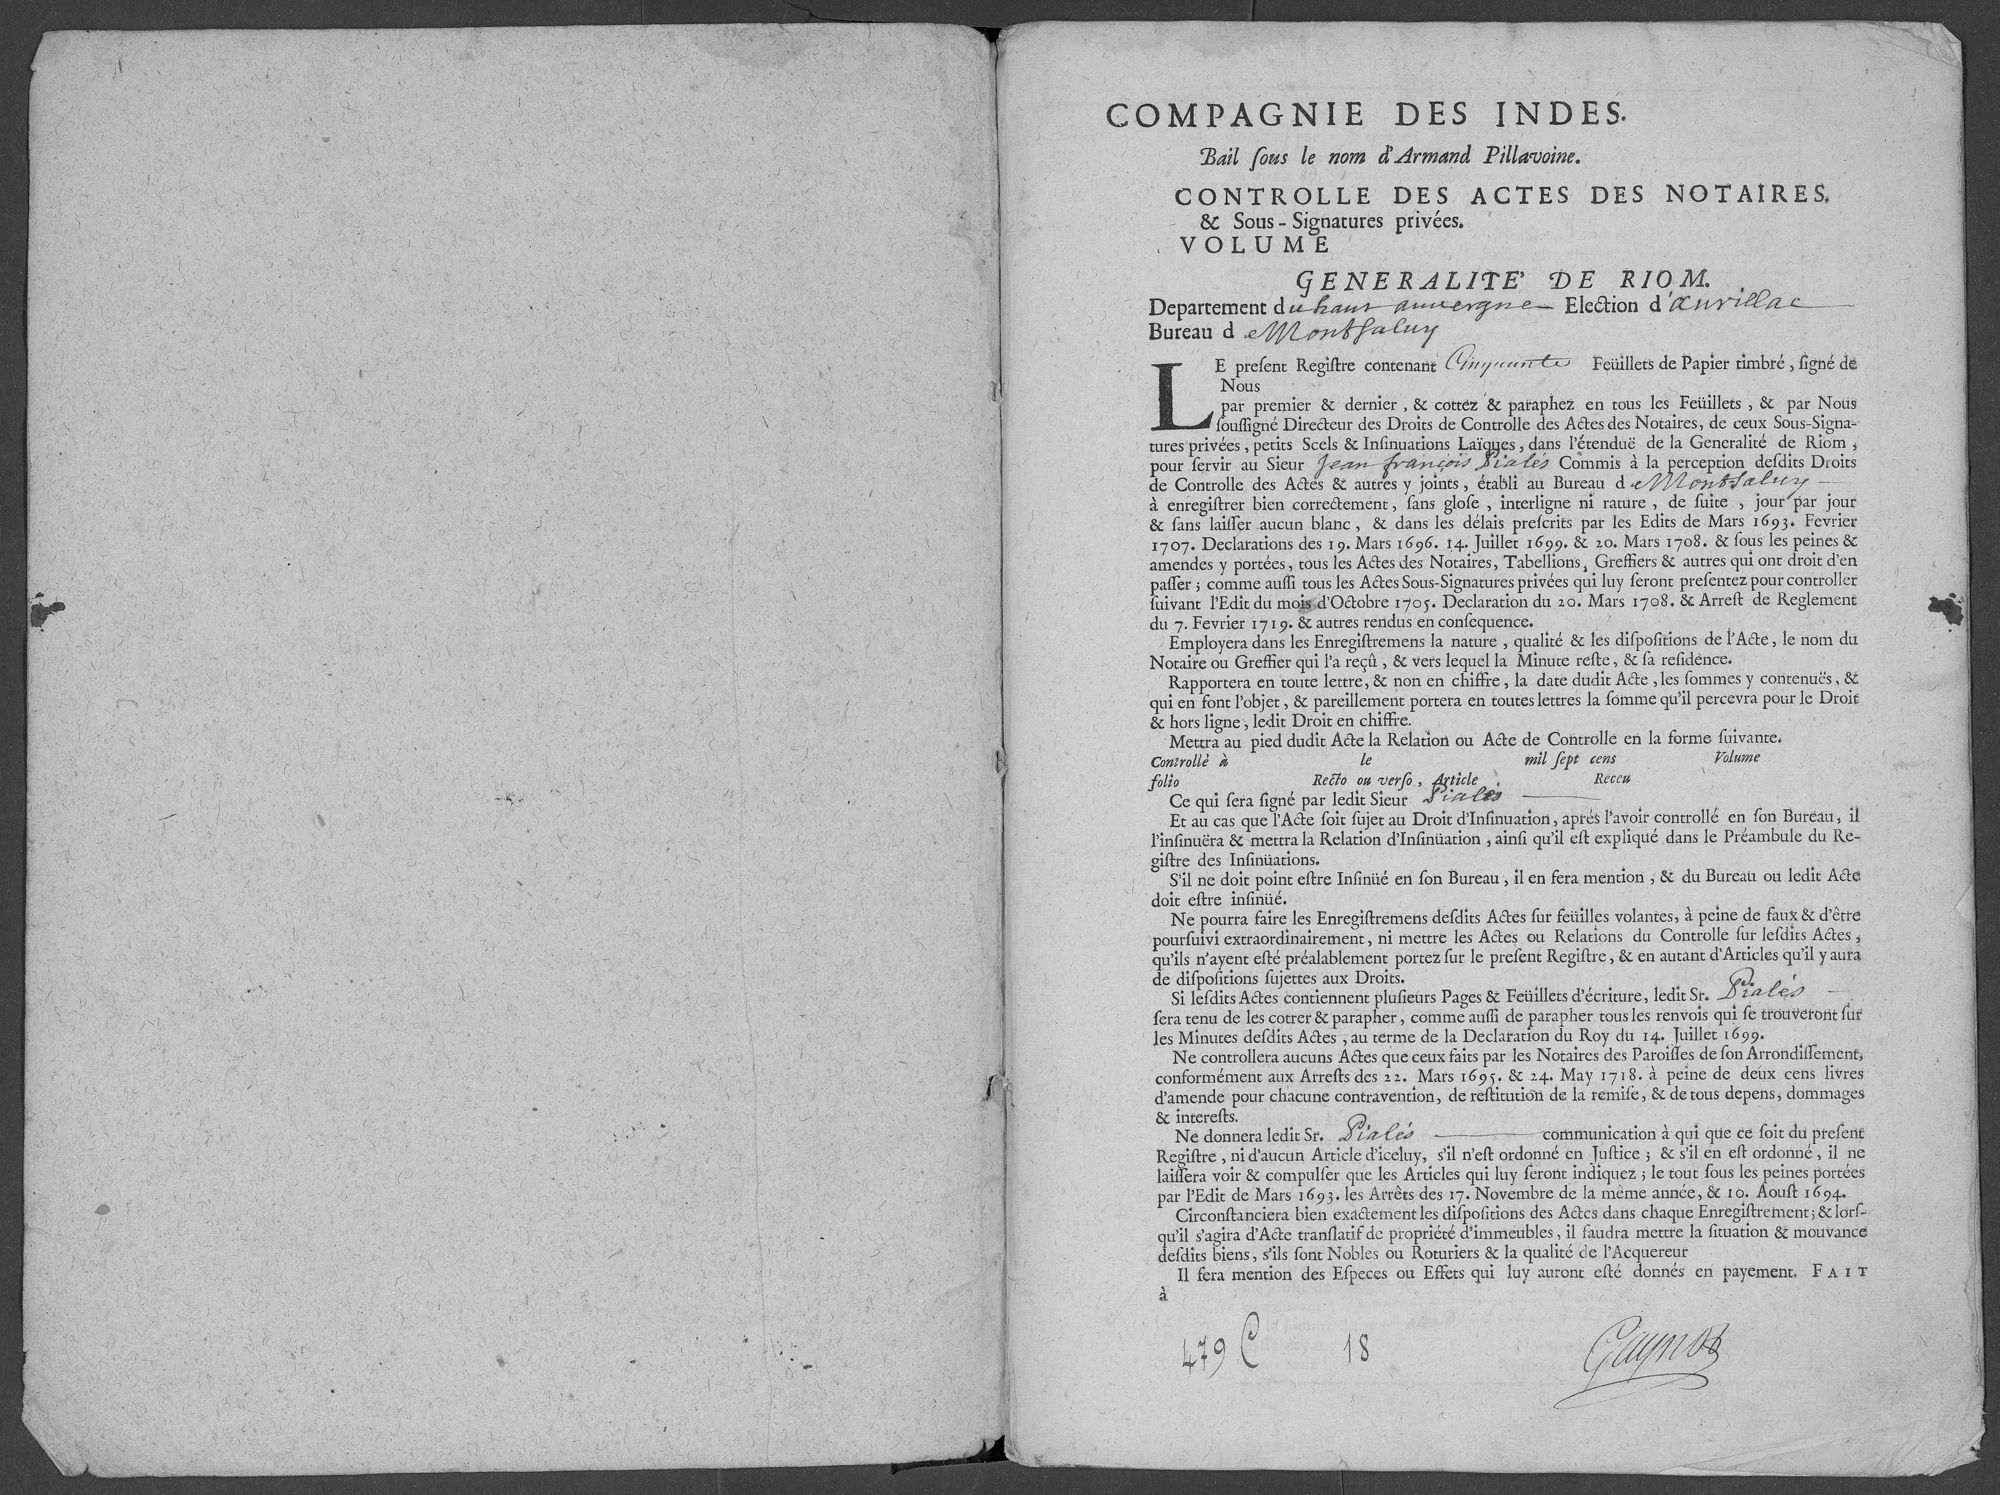 COMPAGNIE DES INDES.
Bail ſous le nom d'Armand Pillavoine.
CONTROLLE DES ACTES DES NOTAIRES.
& Sous-Signatures privées.
VOLUME
GENERALITE' DE RIOM.
Departement du haut auvergne Election d'aurillac
Bureau de Montsaluy
LE preſent Regiſtre contenant Cinquante Feüillets de Papier timbré, ſigné de
Nous
par premier & dernier, & cottez & paraphez en tous les Feüillets, & par Nous
ſouſſigné Directeur des Droits de Controlle des Actes des Notaires, de ceux Sous-Signa-
tures privées, petits Scels & Inſinuations Laïques, dans l'étenduë de la Generalité de Riom,
pour ſervir au Sieur Jean françois Pialés Commis à la perception deſdits Droits
de Controlle des Actes & autres y joints, établi au Bureau de Montsaluy
à enregiſtrer bien correctement, ſans gloſe, interligne ni rature, de ſuite, jour par jour
& ſans laiſſer aucun blanc, & dans les délais preſcrits par les Edits de Mars 1693. Fevrier
1707. Declarations des 19. Mars 1696. 14. Juillet 1699. & 20. Mars 1708. & ſous les peines &
amendes y portées, tous les Actes des Notaires, Tabellions, Greffiers & autres qui ont droit d'en
paſſer; comme auſſi tous les Actes Sous-Signatures privées qui luy ſeront preſentez pour controller
ſuivant l'Edit du mois d'Octobre 1705. Declaration du 20. Mars 1708. & Arreſt de Reglement
du 7. Fevrier 1719. & autres rendus en conſequence.
Employera dans les Enregiſtremens la nature, qualité & les diſpoſitions de l'Acte, le nom du
Notaire ou Greffier qui l'a reçû, & vers lequel la Minute reſte, & ſa reſidence.
Rapportera en toute lettre, & non en chiffre, la date dudit Acte, les ſommes y contenuës, &
qui en font l'objet, & pareillement portera en toutes lettres la ſomme qu'il percevra pour le Droit
& hors ligne, ledit Droit en chiffre.
Mettra au pied dudit Acte la Relation ou Acte de Controlle en la forme ſuivante.
Controllé à le mil ſept cens Volume
folio Recto ou verſo, Article Receu
Ce qui ſera ſigné par ledit Sieur Pialés
Et au cas que l'Acte ſoit ſujet au Droit d'Inſinuation, aprés l'avoir controllé en ſon Bureau, il
l'inſinuëra & mettra la Relation d'Inſinüation, ainſi qu'il eſt expliqué dans le Préambule du Re-
giſtre des Inſinüations.
S'il ne doit point eſtre Inſinüé en ſon Bureau, il en fera mention, & du Bureau ou ledit Acte
doit eſtre inſinüé.
Ne pourra faire les Enregiſtremens deſdits Actes ſur feüilles volantes, à peine de faux & d'être
pourſuivi extraordinairement, ni mettre les Actes ou Relations du Controlle ſur leſdits Actes,
qu'ils n'ayent eſté préalablement portez ſur le preſent Regiſtre, & en autant d'Articles qu'il y aura
de diſpoſitions ſujettes aux Droits.
Si leſdits Actes contiennent pluſieurs Pages & Feüillets d'écriture, ledit Sr. Pialés
ſera tenu de les cotter & parapher, comme auſſi de parapher tous les renvois qui ſe trouveront ſur
les Minutes deſdits Actes, au terme de la Declaration du Roy du 14. Juillet 1699.
Ne controllera aucuns Actes que ceux faits par les Notaires des Paroiſſes de ſon Arrondiſſement,
conformément aux Arreſts des 22. Mars 1695. & 24. May 1718. à peine de deux cens livres
d'amende pour chacune contravention, de reſtitution de la remiſe, & de tous depens, dommages
& intereſts.
Ne donnera ledit Sr. Pialés communication à qui que ce ſoit du preſent
Regiſtre, ni d'aucun Article d'iceluy, s'il n'eſt ordonné en Juſtice; & s'il en eſt ordonné, il ne
laiſſera voir & compulſer que les Articles qui luy ſeront indiquez; le tout ſous les peines portées
par l'Edit de Mars 1693. les Arrêts des 17. Novembre de la même année, & 10. Aouſt 1694.
Circonſtanciera bien exactement les diſpoſitions des Actes dans chaque Enregiſtrement; & lorſ-
qu'il s'agira d'Acte tranſlatif de propriété d'immeubles, il faudra mettre la ſituation & mouvance
deſdits biens, s'ils ſont Nobles ou Roturiers & la qualité de l'Acquereur
Il fera mention des Eſpeces ou Effets qui luy auront eſté donnés en payement. FAIT
à
479 C 18